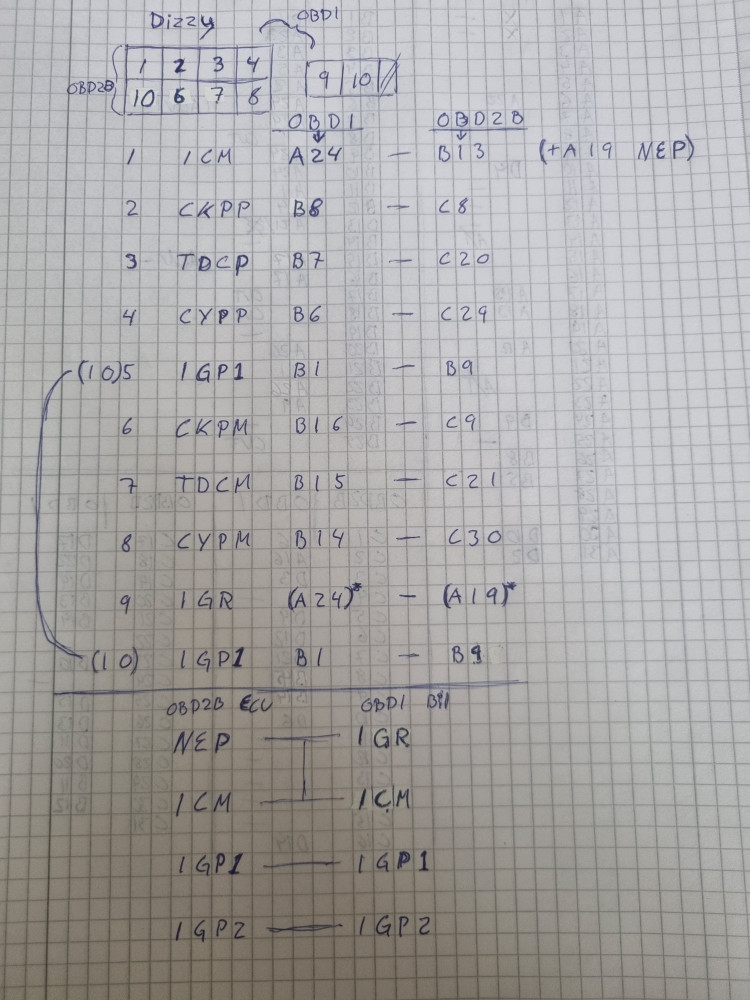 Dizzy OBD1
1 2 3 4
OBD2B 10 6 7 8 9 10
OBD1 OBD2B
1 ICM A24 — B13 (+A19 NEP)
2 CKPP B8 — C8
3 TDCP B7 — C20
4 CYPP B6 — C29
(10)5 IGP1 B1 — B9
6 CKPM B16 — C9
7 TDCM B15 — C21
8 CYPM B14 — C30
9 IGR (A24)* — (A19)*
(10) IGP1 B1 — B9
OBD2B ECU OBD1
NEP — IGR
ICM — ICM
IGP1 — IGP1
IGP2 — IGP2